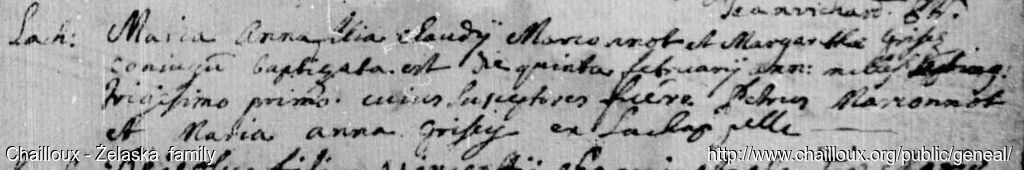 Jeanrichard.
Lach: Maria Anna filia Claudÿ Marconnot et Margartha Griseÿ
Coniugū baptizata est die quinta februarÿ ann: mille septing:
trigesimo primo. cuius Susceptores fuēre Petrus Marconnot
et Maria anna griseÿ ex Lachapelle
Chailloux - Żelaska family
http://www.chailloux.org/public/geneal/